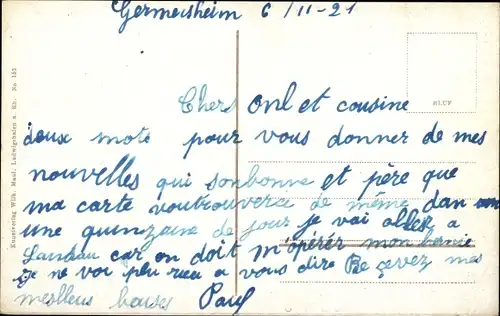 Germersheim 6/11-21
Chers onl et cousine
deux mots pour vous donner de mes
nouvelles qui sonbonne et père que
ma carte voutrouvera de même dan
une quinzaine de jour je vai aller a
Landau car on doit m'opérér mon hernie
Je ne voi plu rien a vous dire Recevez mes
meilleus baises Paul
Kunstverlag Wilh. Maul, Ludwigshafen a. Rh. No. 155